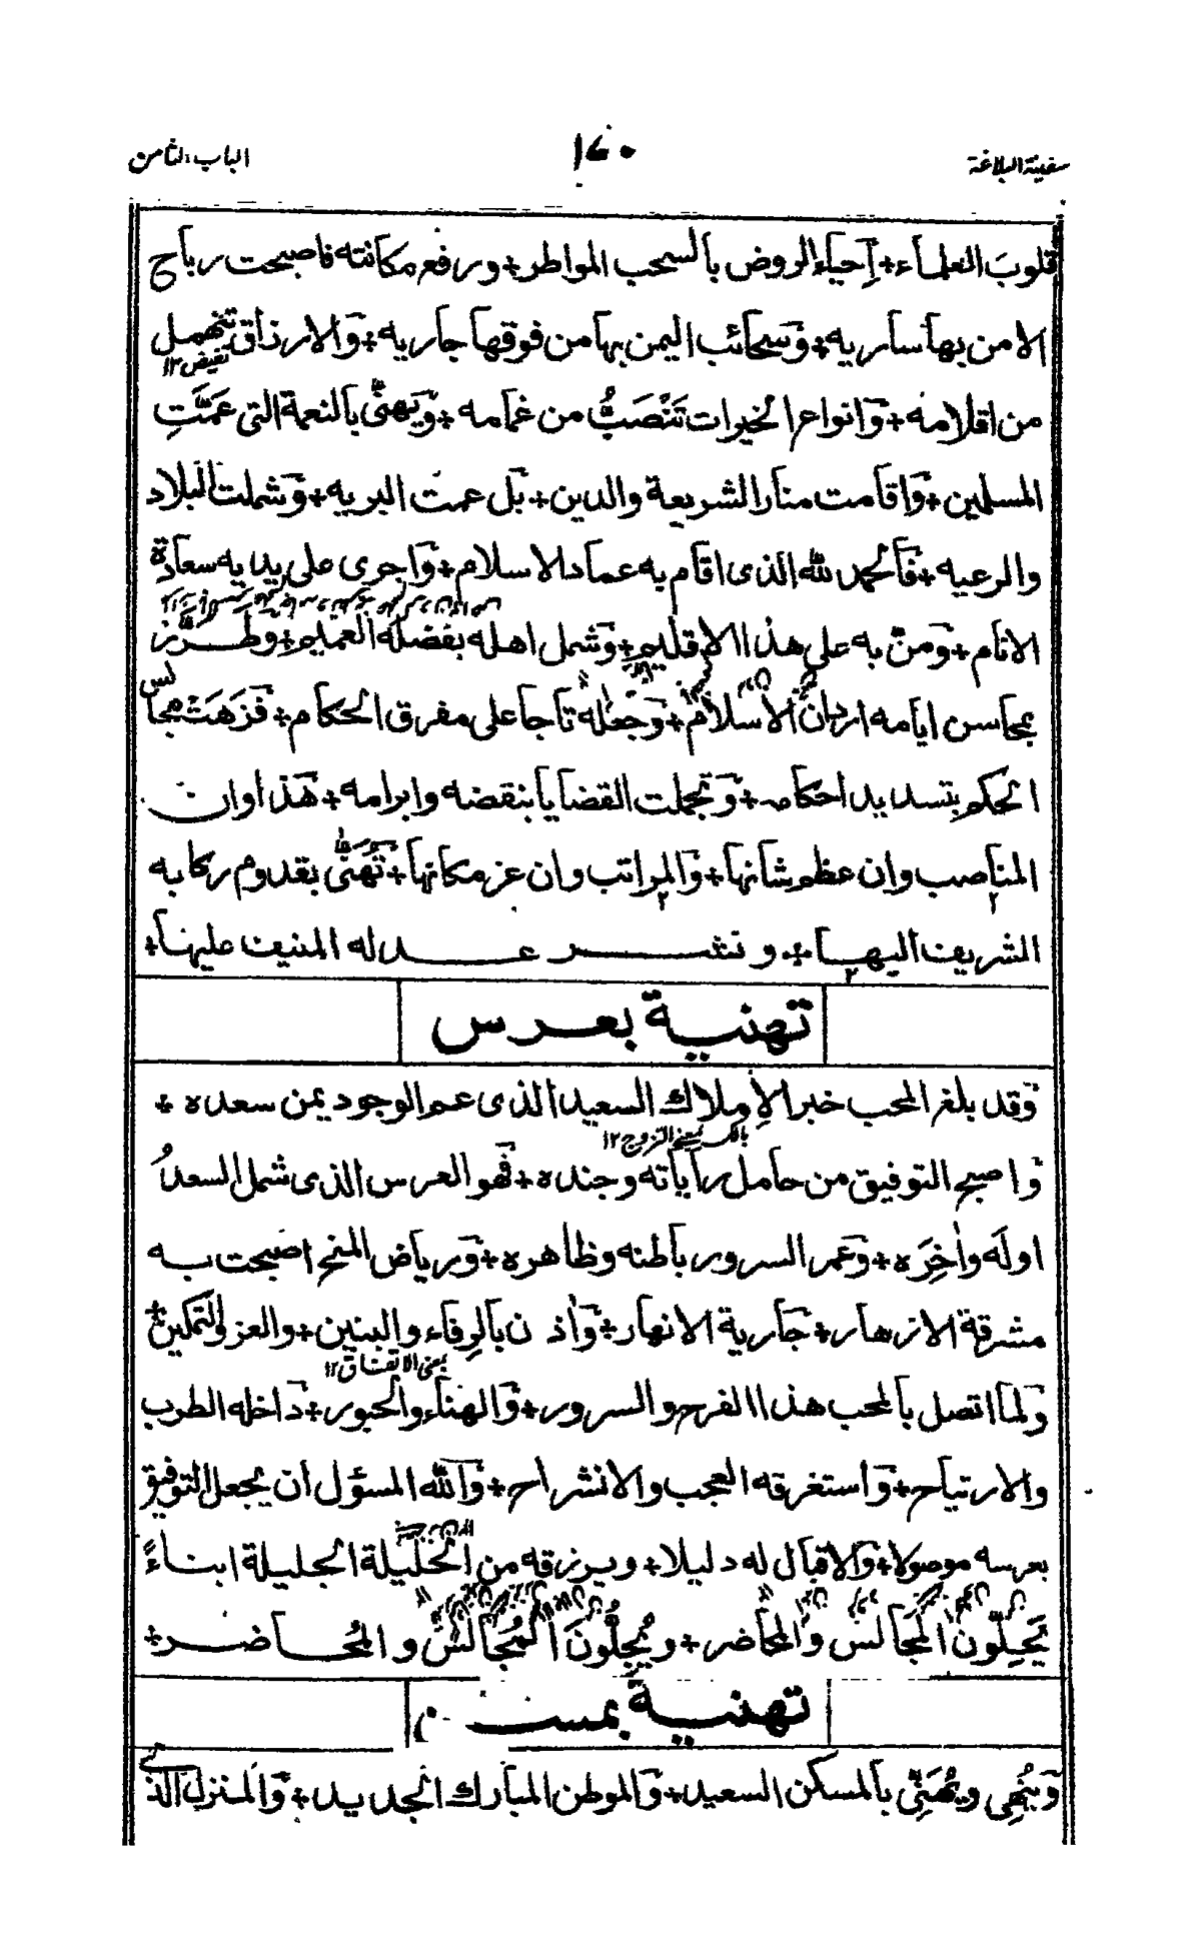 سفينة البلاغة
١٤٠
الباب الثامن
قلوبَ العلماء + إحياء الروض بالسحب المواطر + ورفع مكانته فاصبحت رياح
الامن بها ساريه + وسحائب اليمن بها من فوقها جاريه + والارزاق تنهمل
تفيض ١٢
من اقلامه + وانواع الخيرات تَنْصَبُّ من غمامه + ويهنّى بالنعمة التى عمَّتِ
المسلمين + واقامت منار الشريعة والدين + بل عمت البريه + وشملت البلاد
والرعيه + فالحمد لله الذى اقام به عماد الاسلام + واجرى على يديه سعادة
الانام + ومنّ به على هذا الاقليم + وشمل اهله بفضله العميم + وطرّز
بمحاسن ايامه اردانَ الاسلام + وجعله تاجا على مفرق الحكام + فزهت مجالس
الحكم بتسديد احكامه + وتجملت القضايا بنقضه وابرامه + هذا وان
المناصب وإن عظم شانها + والمراتب وان عز مكانها + تُهنّى بقدوم ركابه
الشريف اليها + ونشر عدله المنيف عليها +
تهنية بعرس
وقد بلغ المحب خبر الإملاك السعيد الذى عم الوجود يمن سعده +
بالكسر بمعنى التزوج ١٢
واصبح التوفيق من حامل راياته وجنده + فهو العرس الذى شمل السعدُ
اولَه واٰخِرَه + وعمر السرور باطنه وظاهره + ورياض المنح اصبحت به
مشرقة الازهار + جارية الانهار + وأذن بالرِفاء والبنين + والعز والتمكين +
بمعنى الاتفاق ١٢
ولما اتصل بالمحب هذا الفرح والسرور + والهناء والحبور + داخله الطرب
والارتياح + واستغرقه العجب والانشراح + والله المسؤل أن يجعل التوفيق
بعرسه موصولا + والاقبال له دليلا + ويرزقه من الخليلة الجليلة ابناءً
يَحِلّون المَجالس والمحاضر + ويُجِلُّونَ المُجالس والمُحاضر +
تهنية بمسكن
ويُنْهِى ويُهَنِّى بالمسكن السعيد + والموطن المبارك الجديد + والمنزل الذى